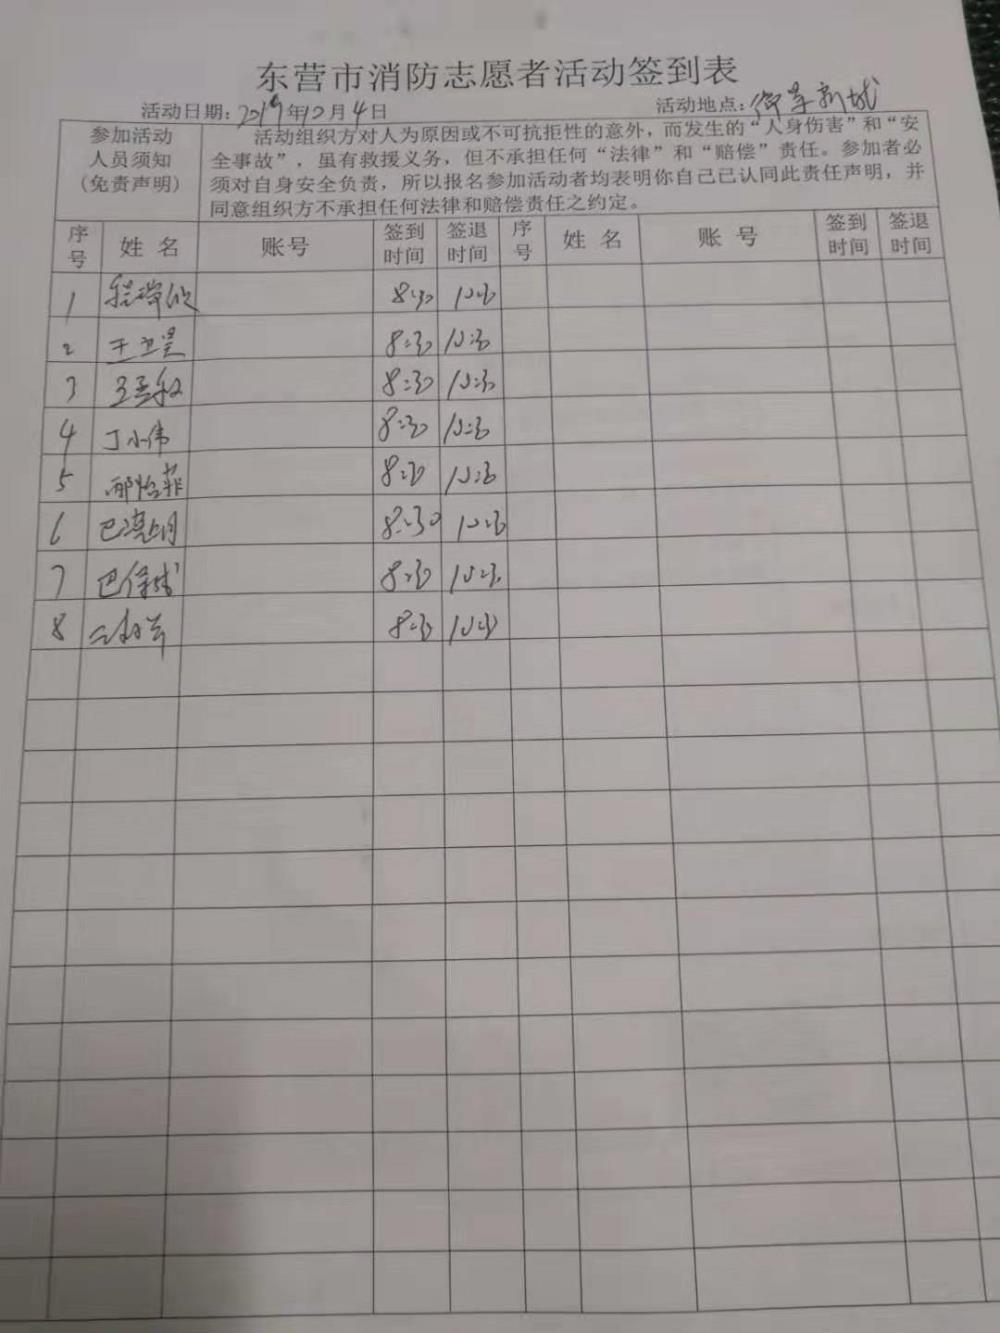 东营市消防志愿者活动签到表
活动日期：2019年12月4日 活动地点：
参加活动人员须知(免责声明)
活动组织方对人为原因或不可抗拒性的意外，而发生的“人身伤害”和“安
全事故”，虽有救援义务，但不承担任何“法律”和“赔偿”责任。参加者必
须对自身安全负责，所以报名参加活动者均表明你自己已认同此责任声明，并
同意组织方不承担任何法律和赔偿责任之约定。
序号 姓名 账号 签到时间 签退时间 序号 姓名 账号 签到时间 签退时间
1 8:30
2 王卫星 8:30
3 8:30
4 丁小伟 8:30
5 邴怡菲 8:30
6 8:30
7 8:30
8 8:30